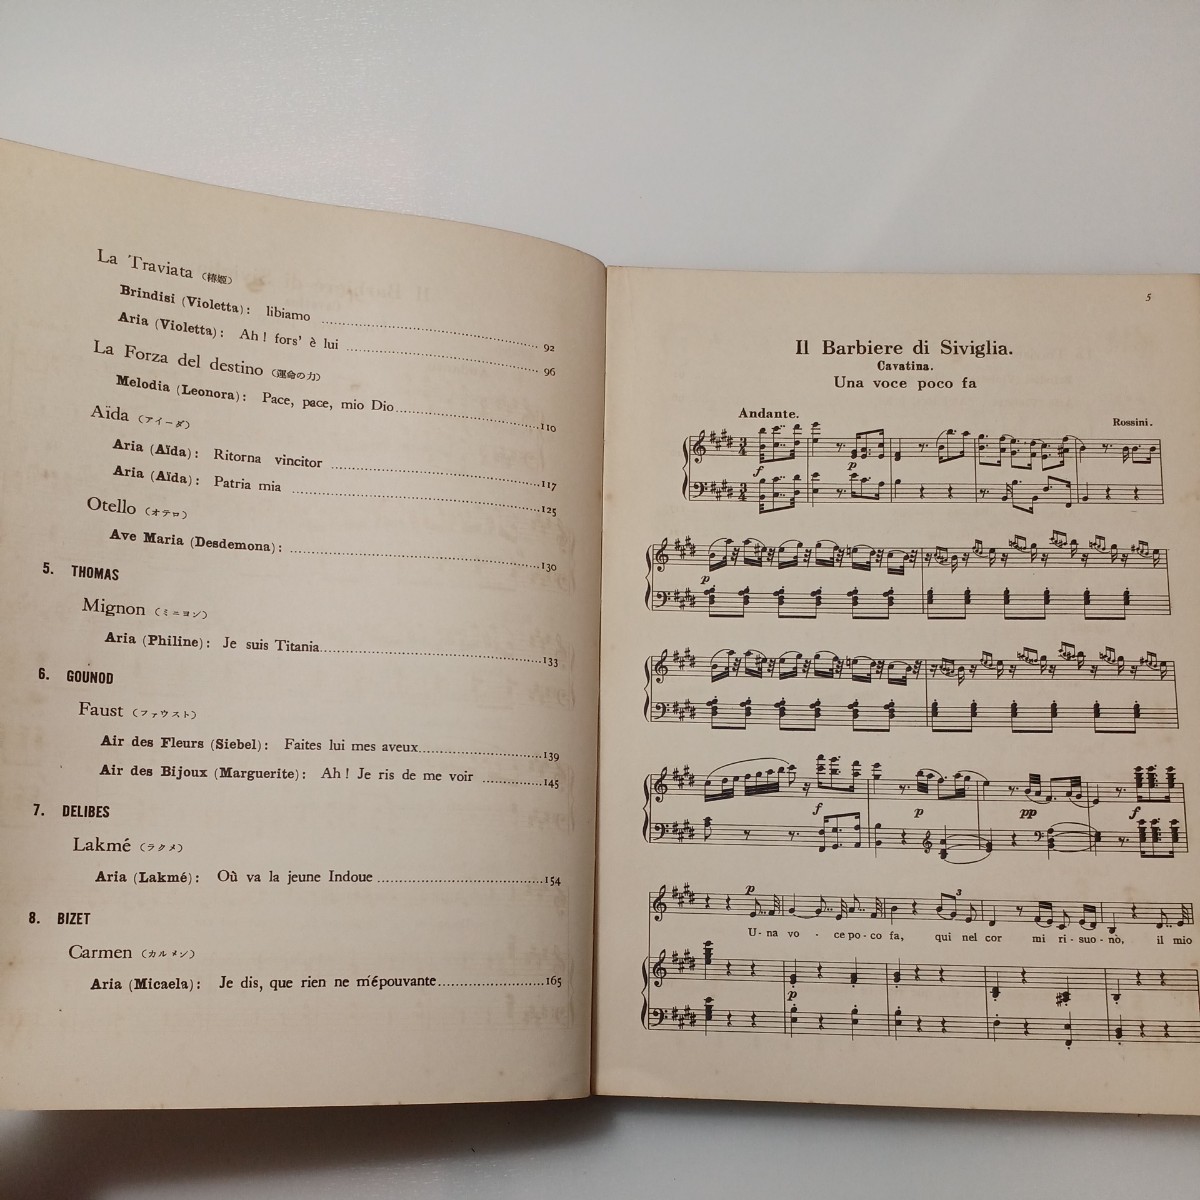 La Traviata (椿姫)
Brindisi (Violetta): libiamo ........ 92
Aria (Violetta): Ah! fors' è lui ........ 96
La Forza del destino (運命の力)
Melodia (Leonora): Pace, pace, mio Dio ........ 110
Aïda (アイーダ)
Aria (Aïda): Ritorna vincitor ........ 117
Aria (Aïda): Patria mia ........ 125
Otello (オテロ)
Ave Maria (Desdemona): ........ 130
5. THOMAS
Mignon (ミニヨン)
Aria (Philine): Je suis Titania ........ 133
6. GOUNOD
Faust (ファウスト)
Air des Fleurs (Siebel): Faites lui mes aveux ........ 139
Air des Bijoux (Marguerite): Ah! Je ris de me voir ........ 145
7. DELIBES
Lakmé (ラクメ)
Aria (Lakmé): Où va la jeune Indoue ........ 154
8. BIZET
Carmen (カルメン)
Aria (Micaela): Je dis, que rien ne m'épouvante ........ 165
5
Il Barbiere di Siviglia.
Cavatina.
Una voce poco fa
Andante.
Rossini.
f p
p
f p pp f
p 3
U-na vo - ce po-co fa, qui nel cor mi ri-suo-nò, il mio
p